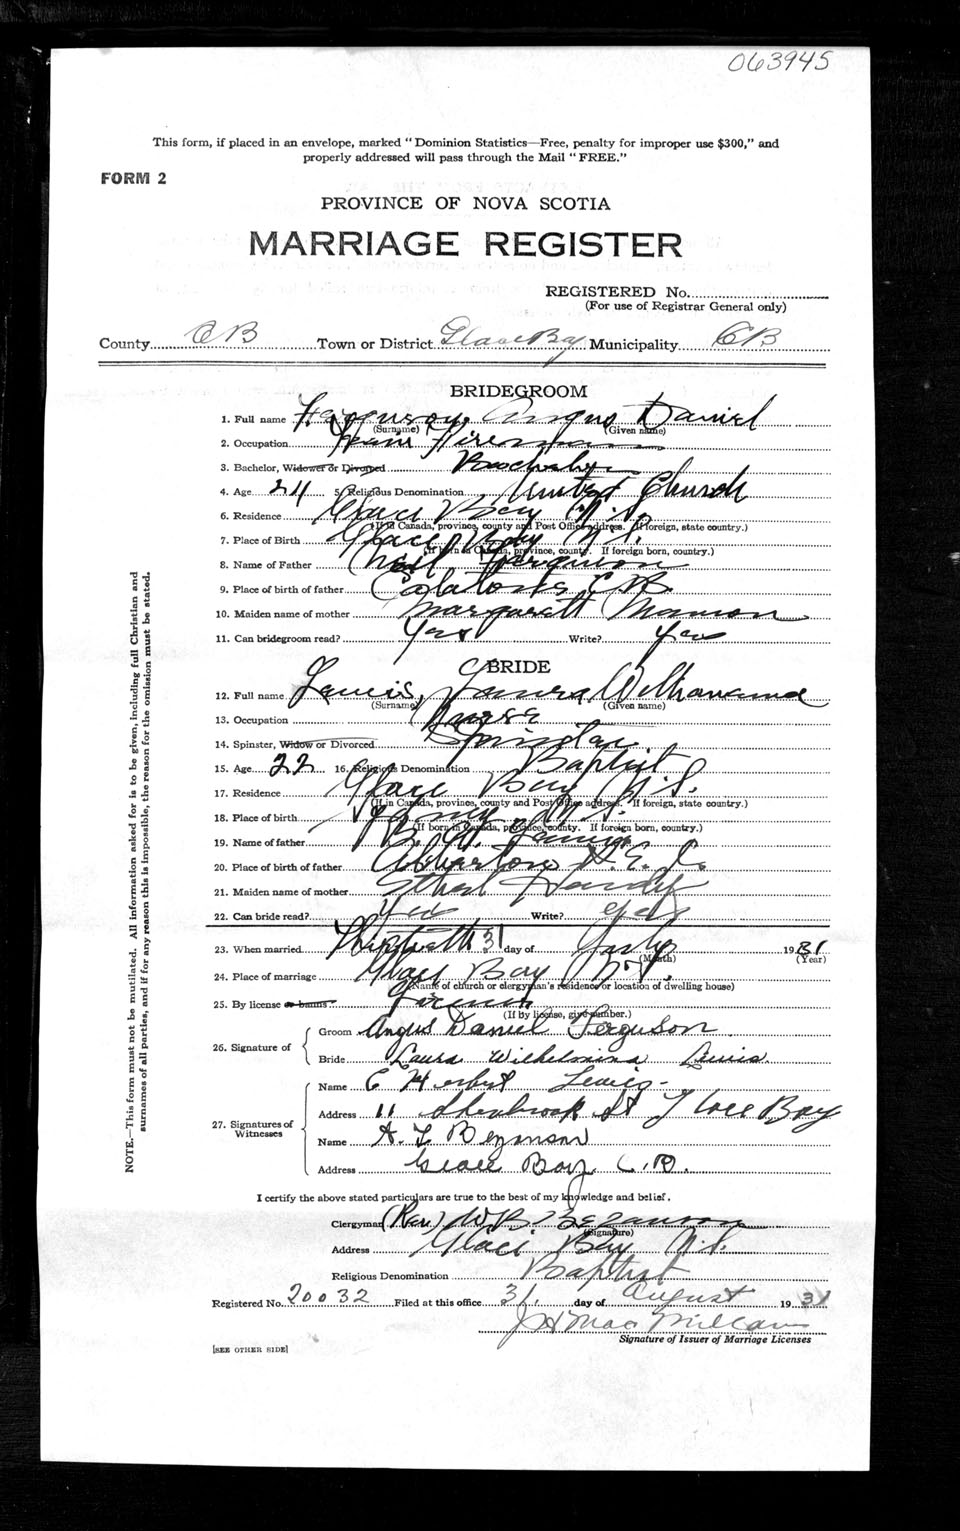 063945
This form, if placed in an envelope, marked "Dominion Statistics—Free, penalty for improper use $300," and
properly addressed will pass through the Mail "FREE."
FORM 2
PROVINCE OF NOVA SCOTIA
MARRIAGE REGISTER
REGISTERED No.
(For use of Registrar General only)
County CB Town or District Glace Bay Municipality CB
BRIDEGROOM
1. Full name Ferguson, Angus Daniel
(Surname) (Given name)
2. Occupation Fireman
3. Bachelor, Widower or Divorced Bachelor
4. Age 24 5. Religious Denomination United Church
6. Residence Glace Bay N.S.
(If in Canada, province, county and Post Office address. If foreign, state country.)
7. Place of Birth Glace Bay N.S.
(If born in Canada, province, county. If foreign born, country.)
8. Name of Father Neil Ferguson
9. Place of birth of father C.B.
10. Maiden name of mother Margarett
11. Can bridegroom read? Yes Write? Yes
BRIDE
12. Full name Lewis, Laura Wilhelmina
(Surname) (Given name)
13. Occupation Nurse
14. Spinster, Widow or Divorced Spinster
15. Age 22 16. Religious Denomination Baptist
17. Residence Glace Bay N.S.
(If in Canada, province, county and Post Office address. If foreign, state country.)
18. Place of birth N.S.
(If born in Canada, province, county. If foreign born, country.)
19. Name of father Lewis
20. Place of birth of father
21. Maiden name of mother Ethel
22. Can bride read? Yes Write? Yes
23. When married 31 day of July 1931
(Month) (Year)
24. Place of marriage Glace Bay N.S.
(Name of church or clergyman's residence or location of dwelling house)
25. By license or banns
(If by license, give number.)
26. Signature of
Groom Angus Daniel Ferguson
Bride Laura Wilhelmina Lewis
27. Signatures of Witnesses
Name C Herbert Lewis
Address 11 Sherbrook St Glace Bay
Name A. L Bezanson
Address Glace Bay C.B.
I certify the above stated particulars are true to the best of my knowledge and belief.
Clergyman (Rev) W B Bezanson
(Signature)
Address Glace Bay N.S.
Religious Denomination Baptist
Registered No. 20032 Filed at this office 31 day of August 1931
J H MacMillan
Signature of Issuer of Marriage Licenses
[SEE OTHER SIDE]
NOTE.—This form must not be mutilated. All information asked for is to be given, including full Christian and
surnames of all parties, and if for any reason this is impossible, the reason for the omission must be stated.